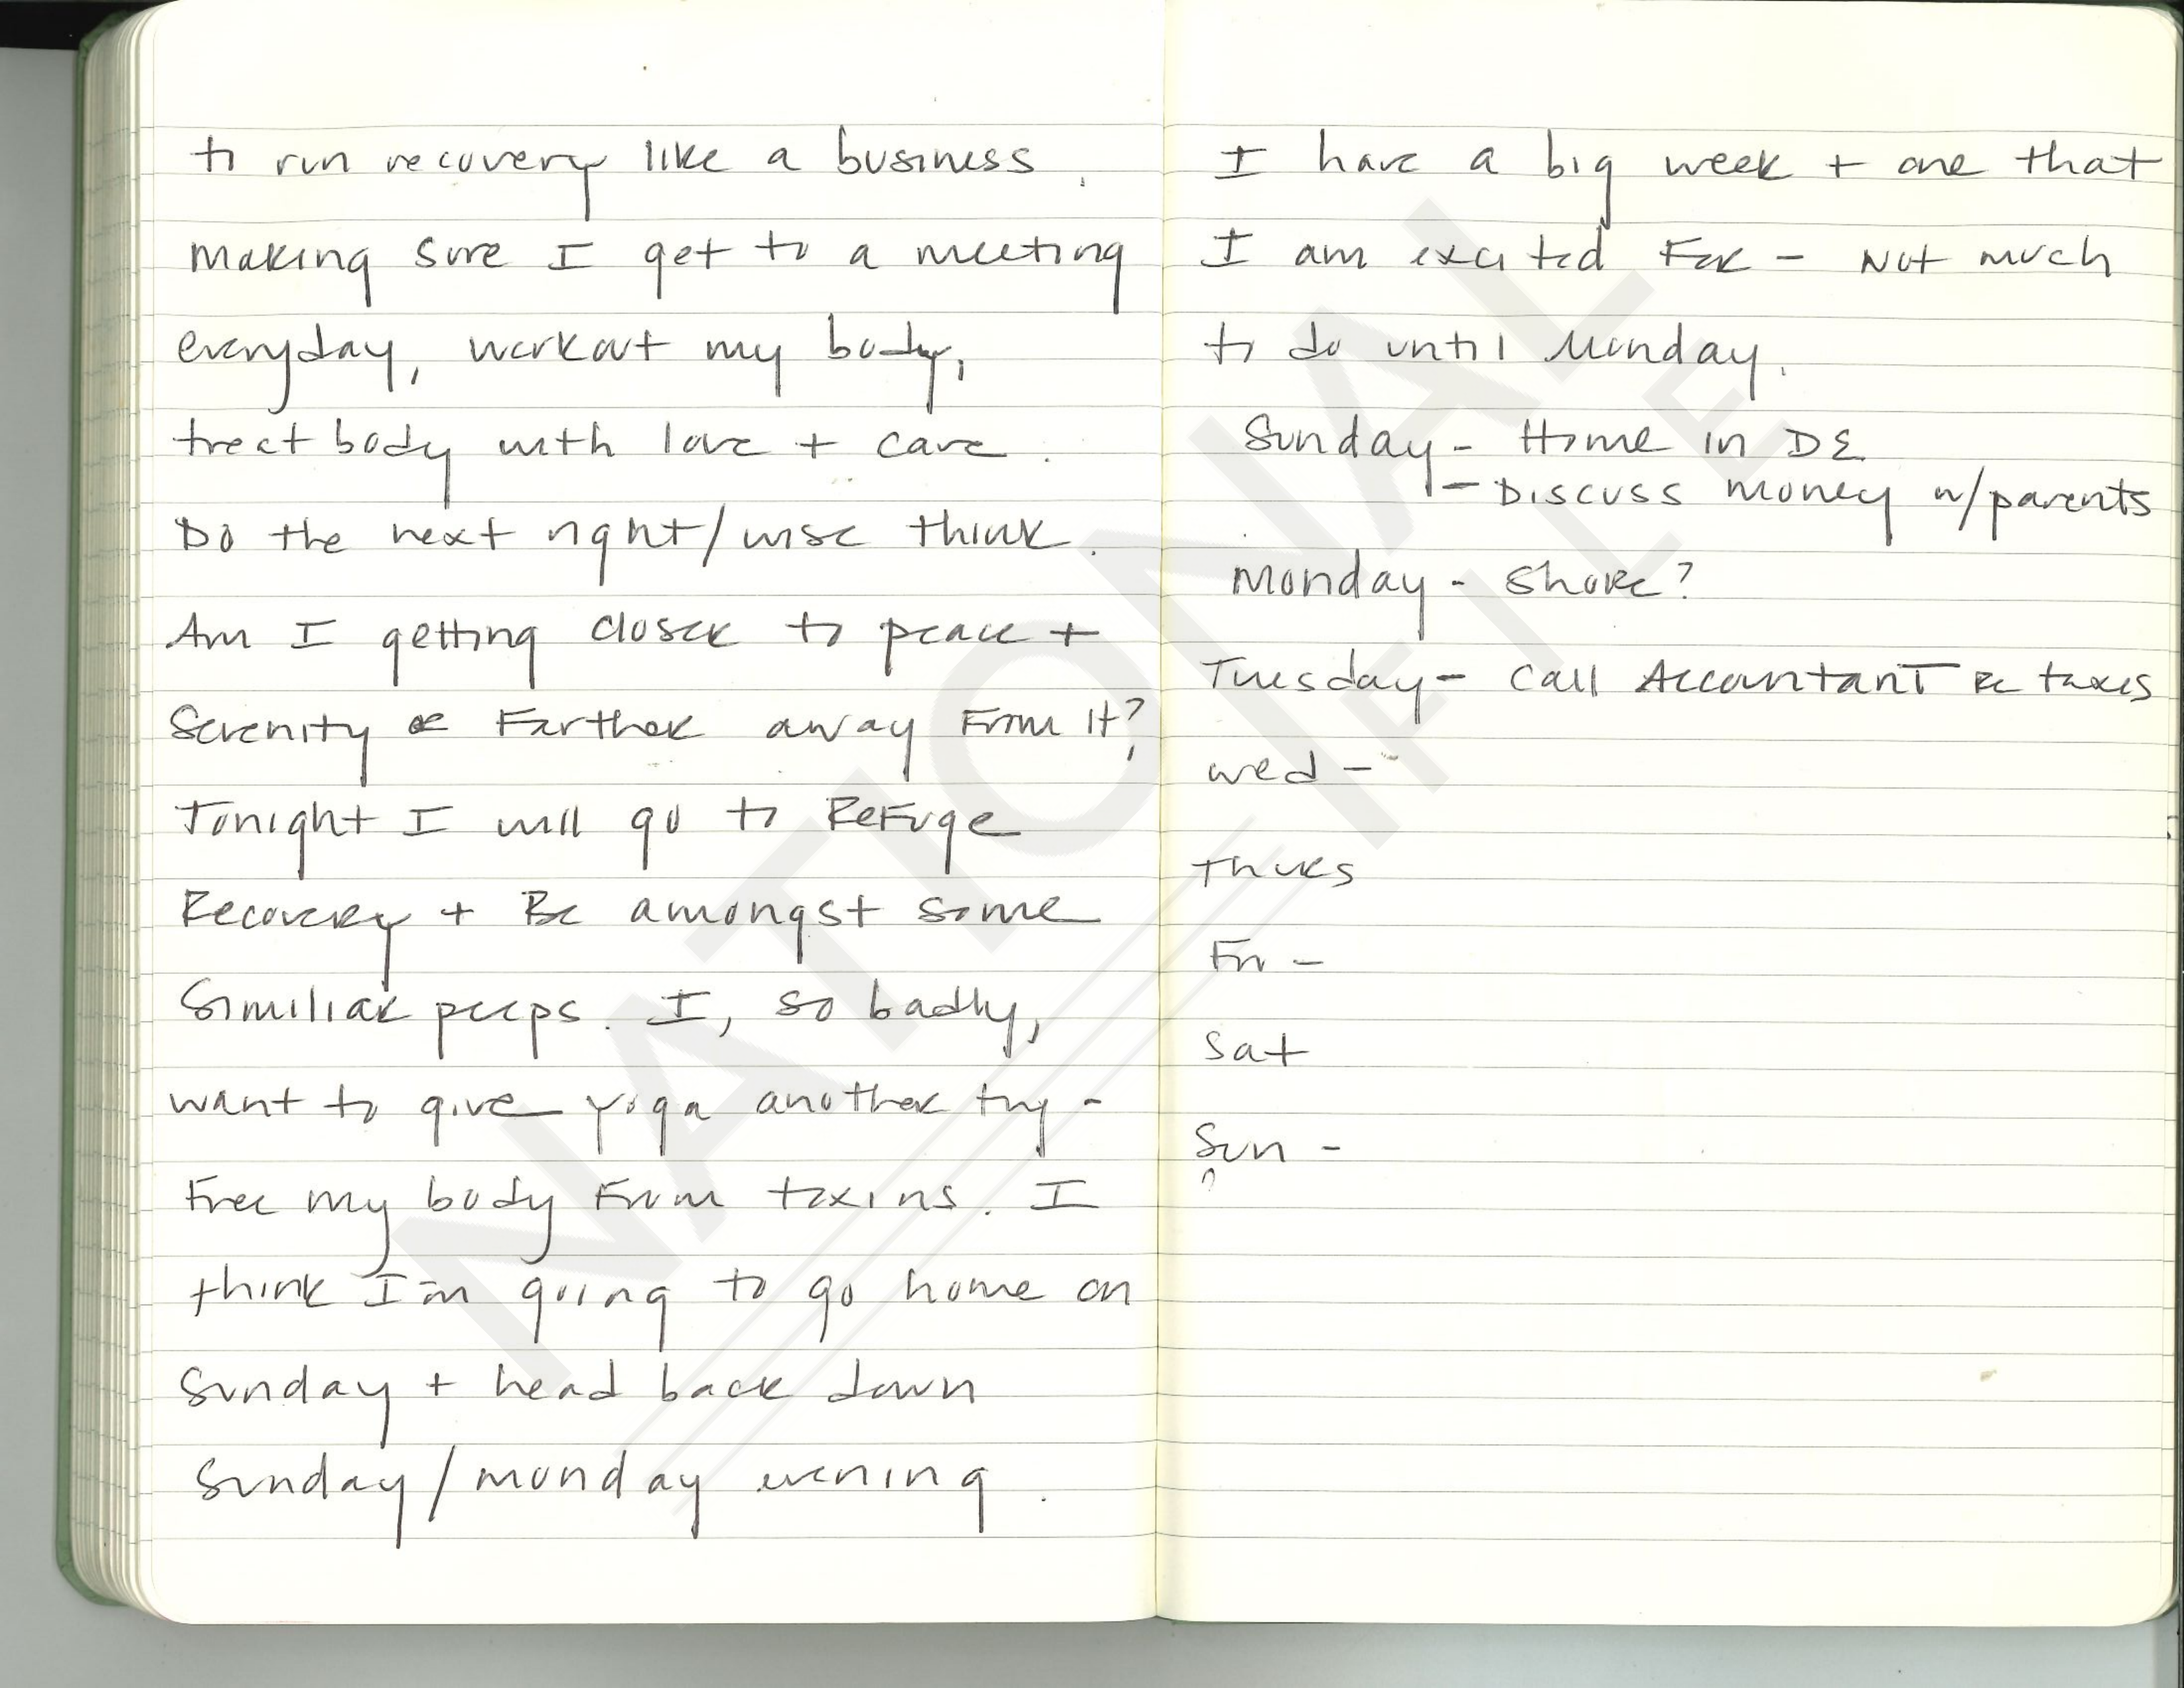 to run recovery like a business.
making sure I get to a meeting
everyday, workout my body,
treat body with love + care.
Do the next right/wise think.
Am I getting closer to peace +
serenity or Farther away From it?
Tonight I will go to Refuge
Recovery + Be amongst some
similiar peeps. I, so badly,
want to give yoga another try -
Free my body From toxins. I
think I'm going to go home on
Sunday + head back down
Sunday/monday evening.
I have a big week + one that
I am excited For - Not much
to do until Monday.
Sunday - Home in DE
- Discuss money w/parents
Monday - Shore?
Tuesday - Call Accountant Re taxes
wed -
Thurs
Fri -
Sat
Sun -
NATIONAL
FILE